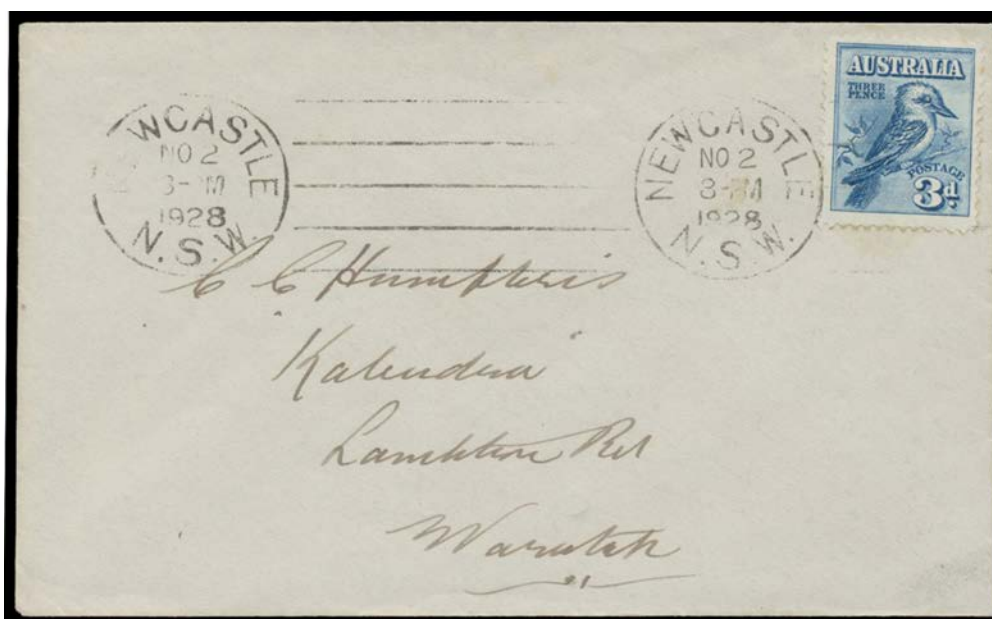 WCASTLE
NO 2
3-PM
1928
N.S.W.
NEWCASTLE
NO 2
3-PM
1928
N.S.W.
AUSTRALIA
THREE
PENCE
POSTAGE
3d.
C C Humphris
Lambton Rd
Waratah